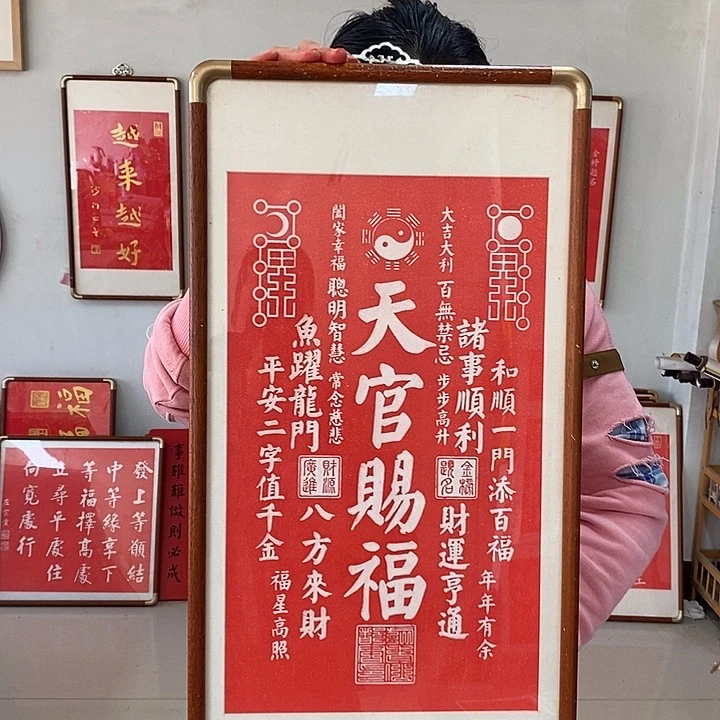 天官賜福
大吉大利 百無禁忌 步步高升
諸事順利
金榜
題名
財運亨通
和順一門添百福
年年有余
闔家幸福 聰明智慧 常念慈悲
魚躍龍門
財源
廣進
八方來財
平安二字值千金
福星高照
越來越好
福
發上等願結
中等緣享下
等福擇高處
立尋平處住
向寬處行
左宗棠
事雖難做則必成
金榜題名